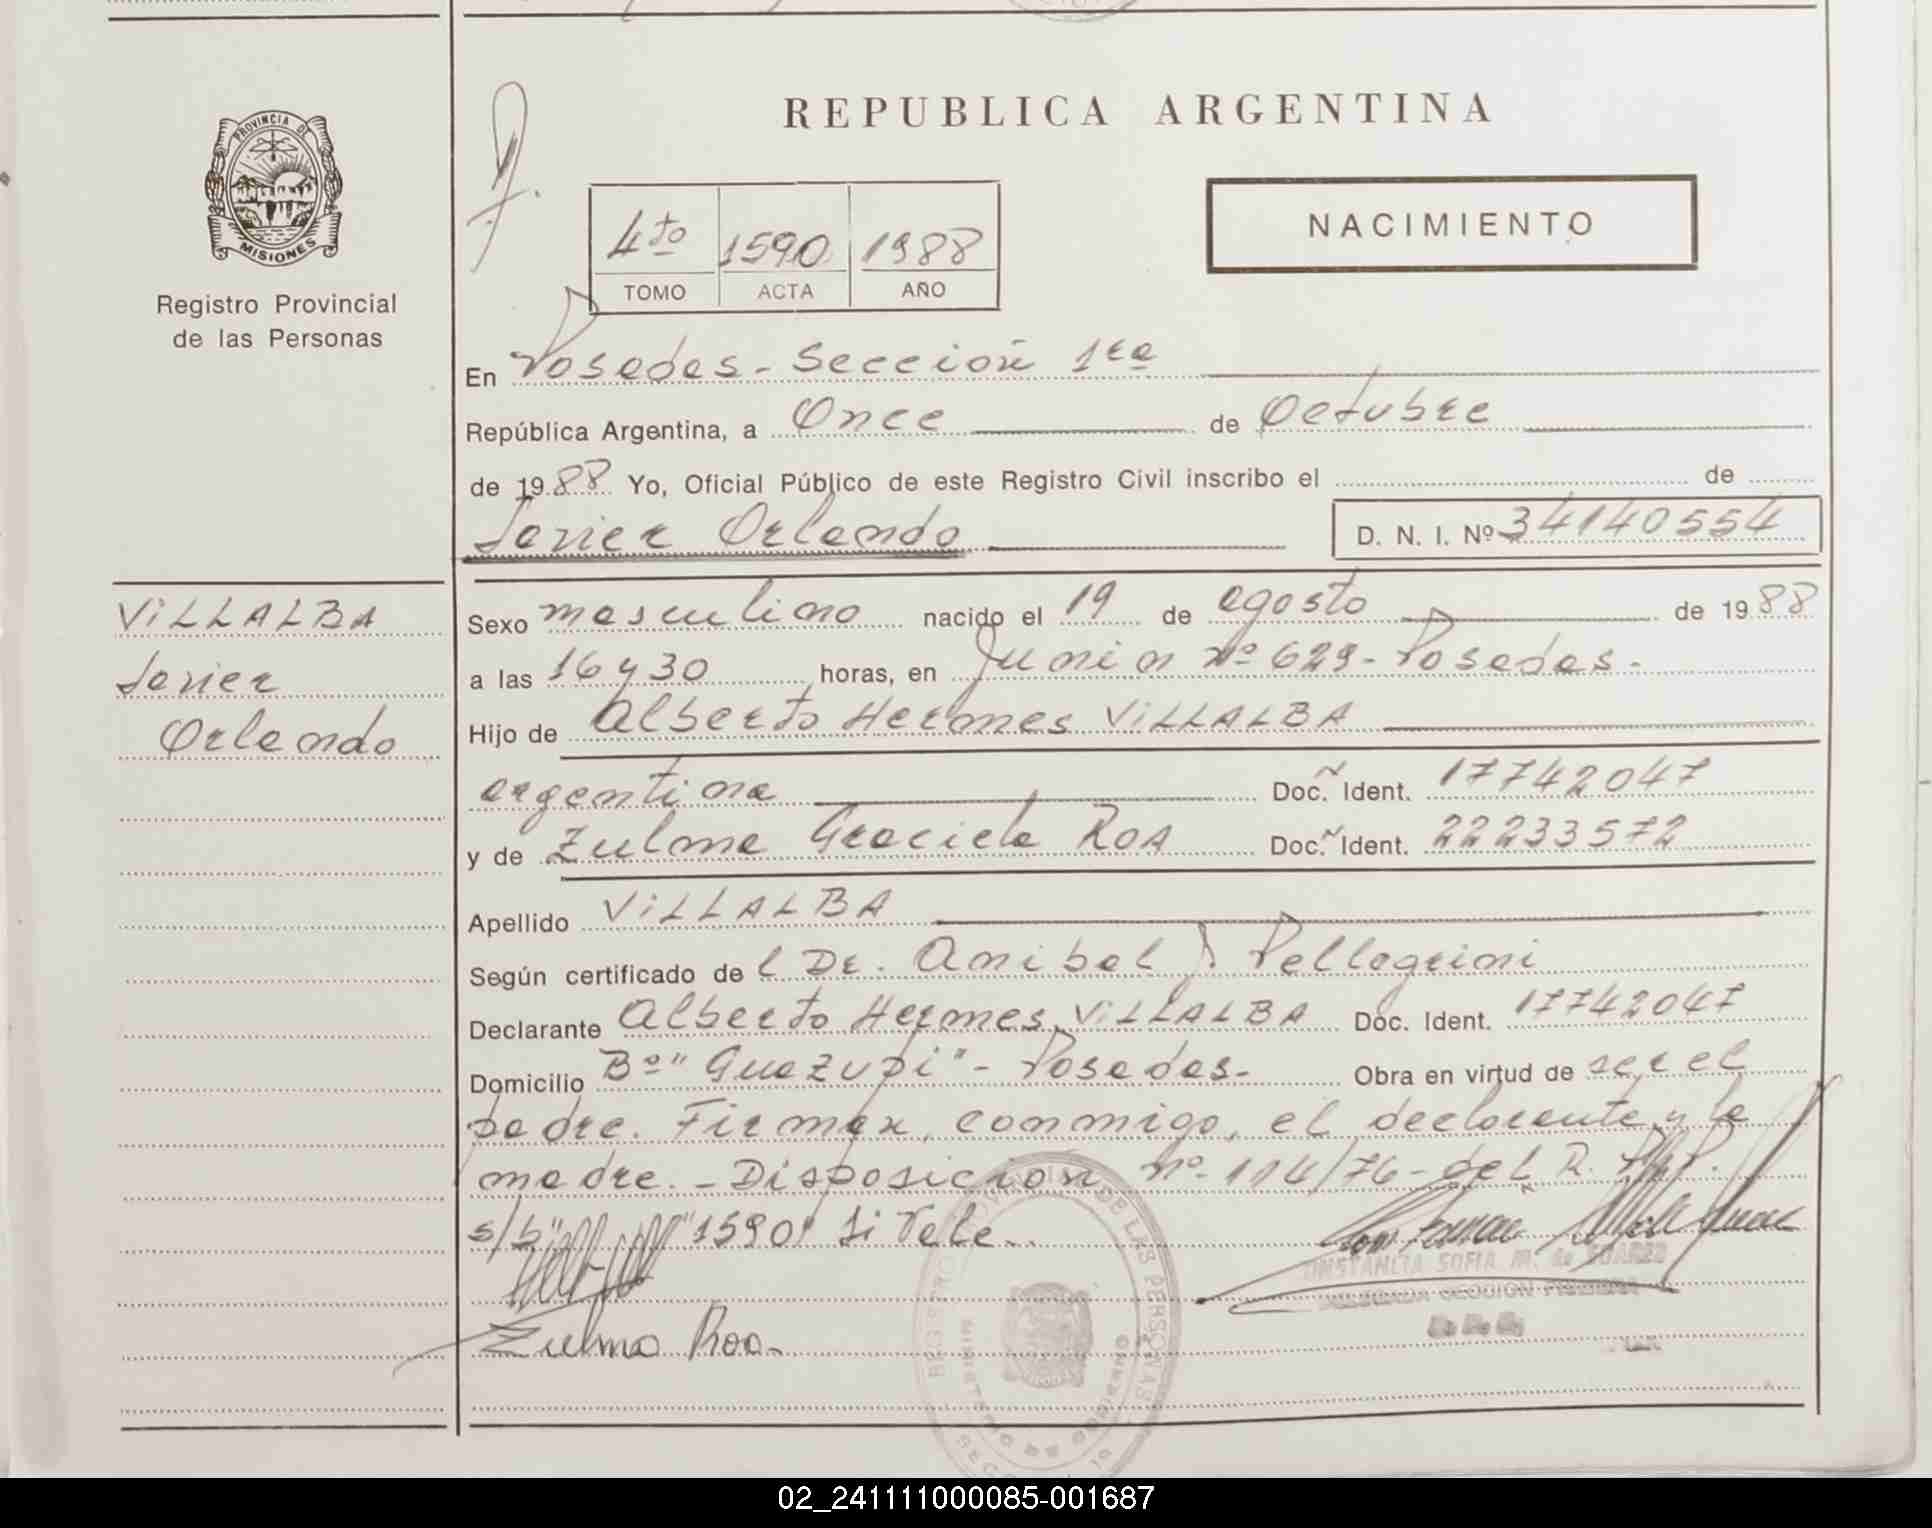 PROVINCIA DE
MISIONES
Registro Provincial
de las Personas
REPUBLICA ARGENTINA
4to 1590 1988
TOMO ACTA AÑO
NACIMIENTO
En Posadas - Sección 1ra
República Argentina, a Once de Octubre
de 1988 Yo, Oficial Público de este Registro Civil inscribo el de
Javier Orlando D. N. I. Nº 34140554
VILLALBA
Javier
Orlando
Sexo masculino nacido el 19 de agosto de 1988
a las 16 y 30 horas, en Junin Nº 629 - Posadas.
Hijo de Alberto Hermes VILLALBA
argentina Doc. Ident. 17742047
y de Zulma Graciela ROA Doc. Ident. 22233572
Apellido VILLALBA
Según certificado del Dr. Anibal J. Pellegrini
Declarante Alberto Hermes VILLALBA Doc. Ident. 17742047
Domicilio Bº "Guazupi" - Posadas. Obra en virtud de ser el
padre. Firman, conmigo, el declarante y la
madre. - Disposición nº 114/76 - del R.
s/b "1590" Si Vale.
SOFIA M. de SUAREZ
SECCION PRIMERA
Zulma Roa.
02_241111000085-001687